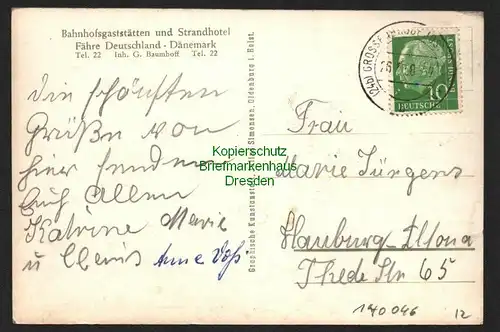 Bahnhofsgaststätten und Strandhotel
Fähre Deutschland - Dänemark
Tel. 22 Inh. G. Baumhoff Tel. 22
Die schönsten
Grüße von
hier senden
Euch allen
Katrine Marie
u
Anne Voß
Graphische Kunstanstalt Simonsen, Oldenburg i. Holst.
(24b) GROSSE
DEUTSCHE
10
Frau
Marie Jürgens
Hamburg-Altona
Thede Str 65
140046
12
Kopierschutz
Briefmarkenhaus
Dresden